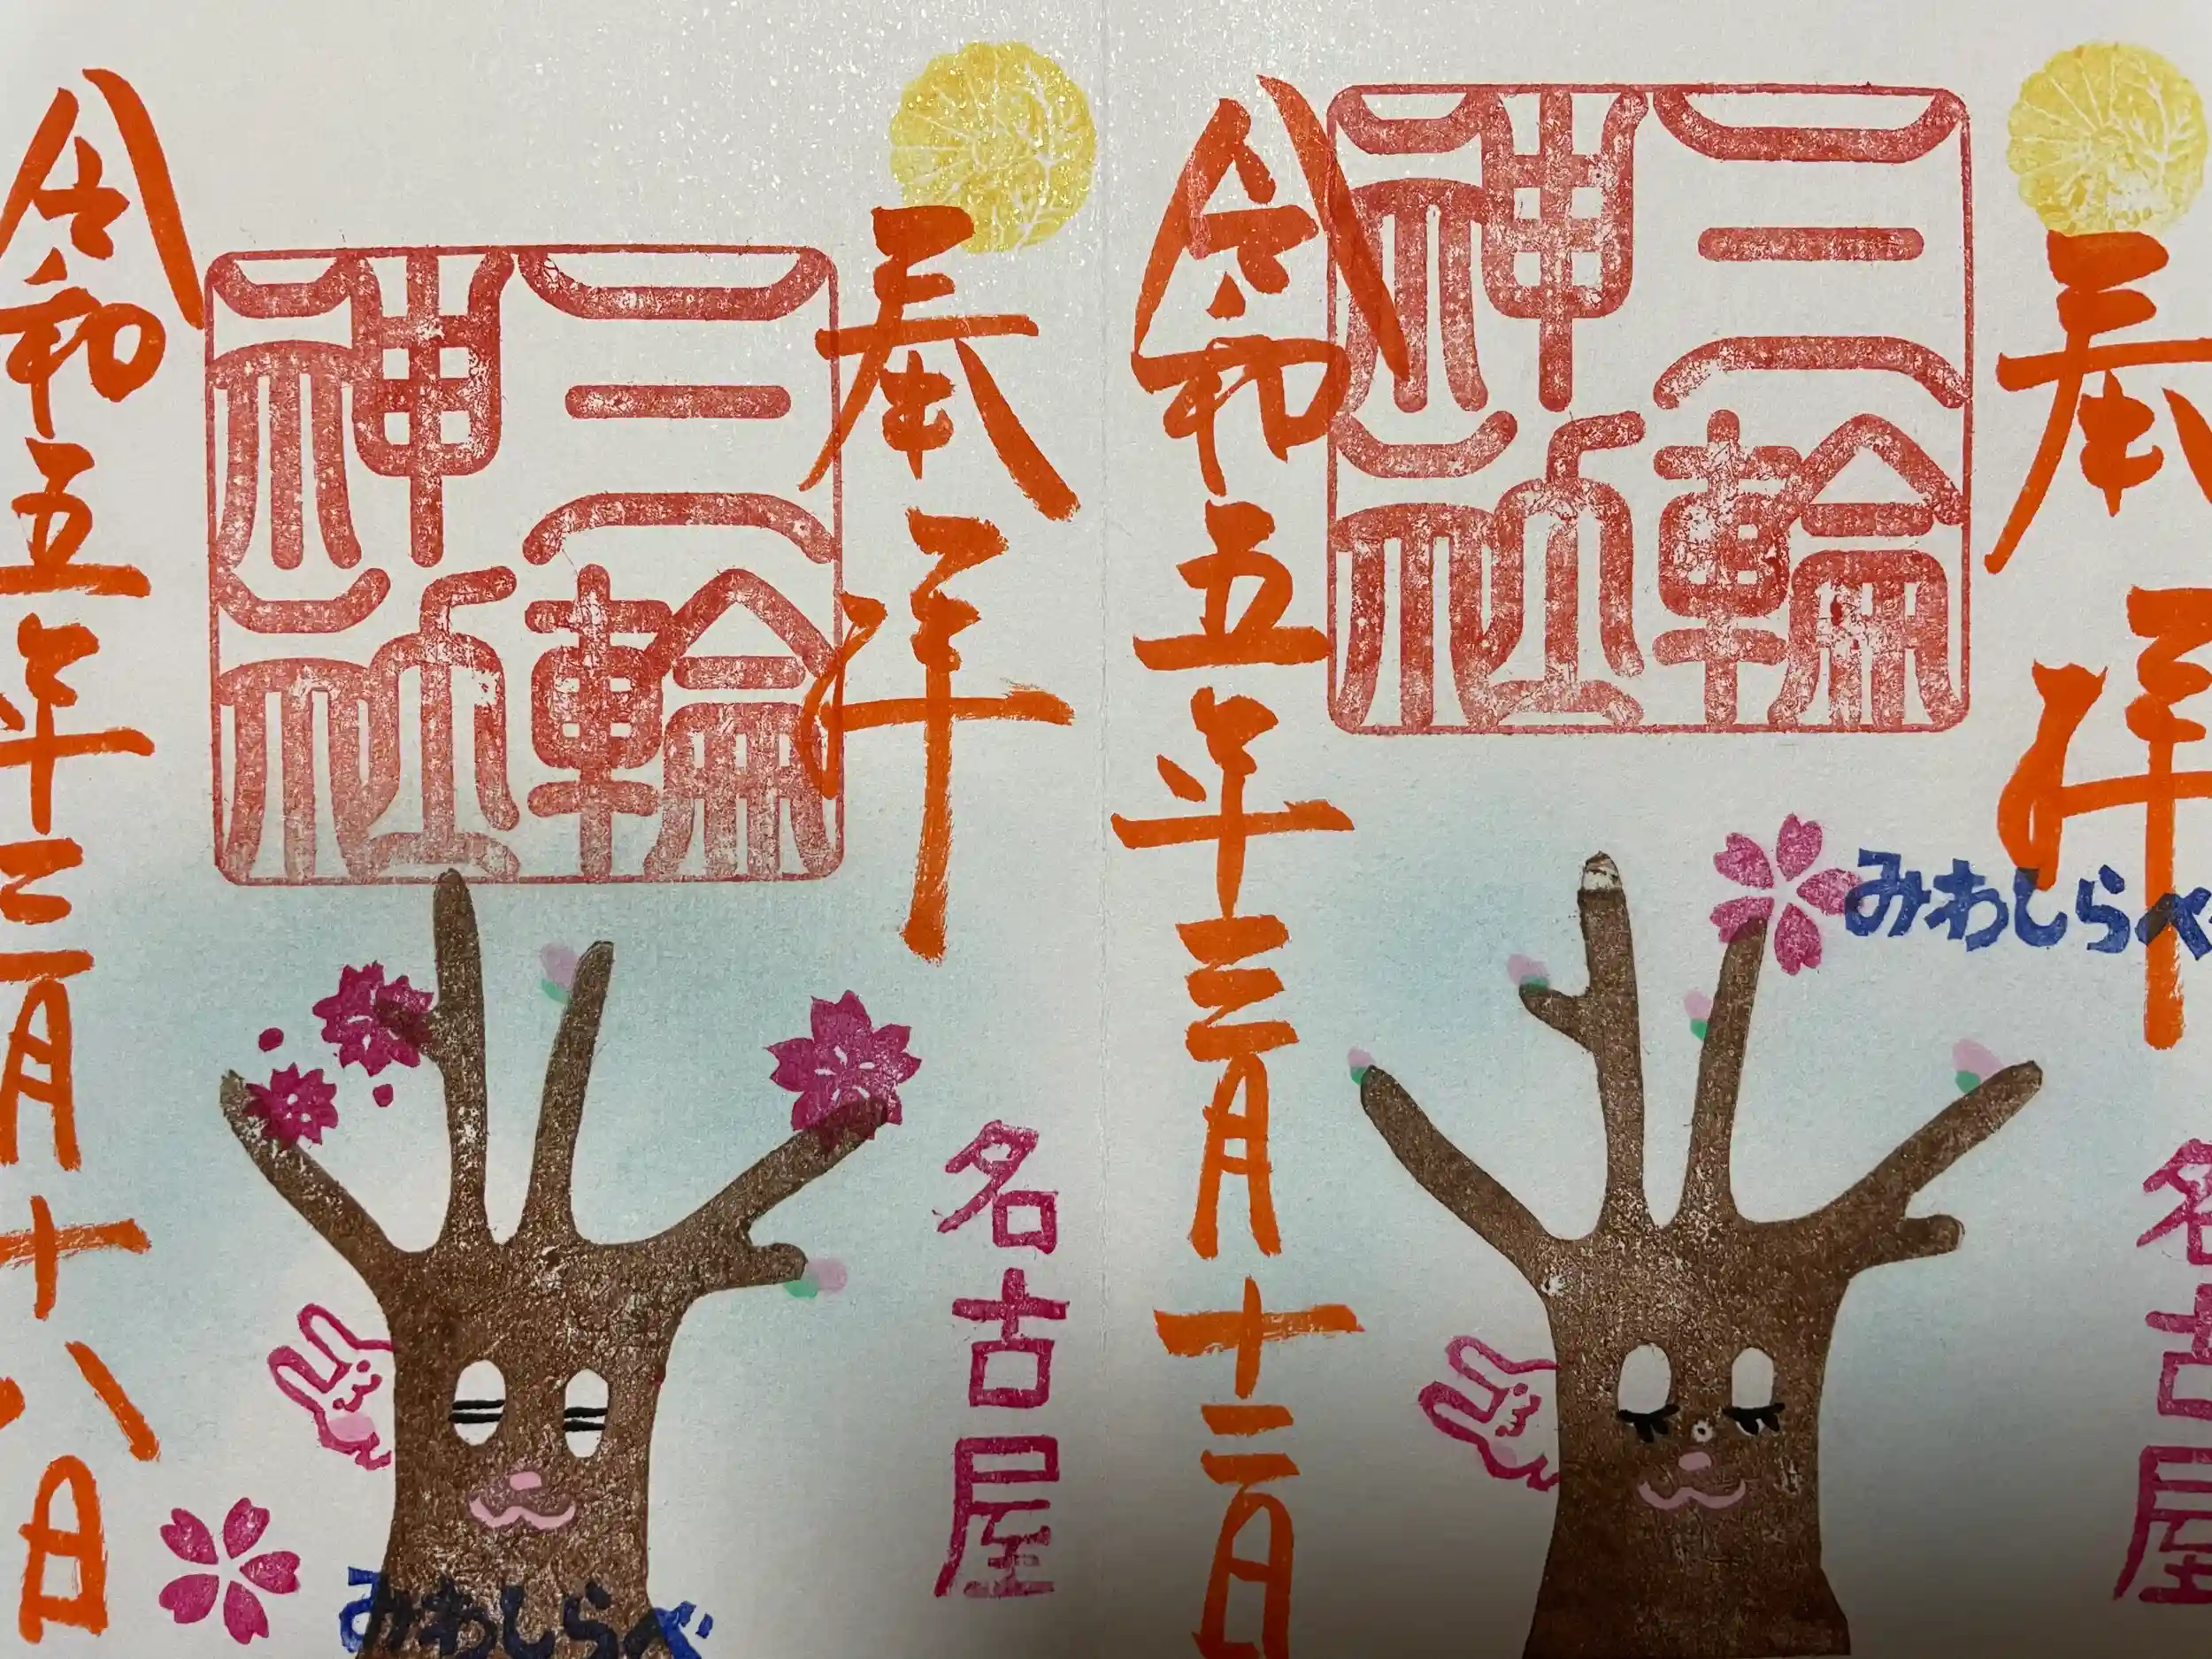 奉拝
三輪神社
みわしらべ
名古屋
令和五年三月十二日
奉拝
三輪神社
名古屋
みわしらべ
令和五年三月十八日